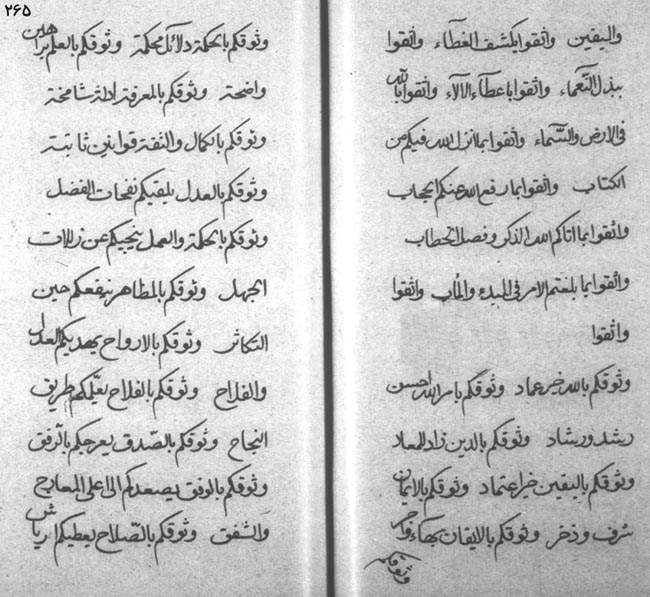 ٢٦٥
واليقين واثقوا بكشف الغطآء واثقوا
ببذل النّعماء واثقوا باعطآء الآلاء واثقوا بالله
فى الارض والسّماء واثقوا بما نزل الله فيكم من
الكتاب واثقوا بما رفع الله عنكم الحجاب
واثقوا بما اتاكم الله الذكر وفصل الخطاب
واثقوا بما بلغتم الامر فى المبدء والمآب واثقوا
واثقوا
وثوقكم بالله خير عماد وثوقكم بامر الله احسن
رشد ورشاد وثوقكم بالدين زاد المعاد
وثوقكم باليقين خير اعتماد وثوقكم بالايمان
شرف وذخر وثوقكم بالايقان بهاء وفخر
وثوقكم
وثوقكم بالحكمة دلآئل محكمة وثوقكم بالعلم براهين
واضحة وثوقكم بالمعرفة ادلة شامخة
وثوقكم بالكمال والثقة قوانين ثابتة
وثوقكم بالعدل يلقيكم نفحات الفضل
وثوقكم بالحكمة والعمل ينجيكم عن زلات
الجهل وثوقكم بالمظاهر ينفعكم حين
التكاثر وثوقكم بالارواح يهديكم العدل
والفلاح وثوقكم بالفلاح يعلّيكم طريق
النجاح وثوقكم بالصّدق يعرجكم بالرّفق
وثوقكم بالوفق يصعدكم الى اعلى المعارج
والشفق وثوقكم بالصّلاح يعطيكم رياش